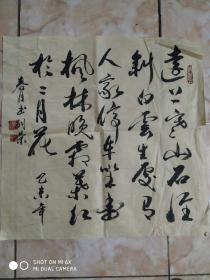 遠上寒山石徑
斜白雲生處有
人家停車坐爱
枫林晚霜葉红
於二月花 乙未年
春月書
XIAOMI MI 6X
MI DUAL CAMERA